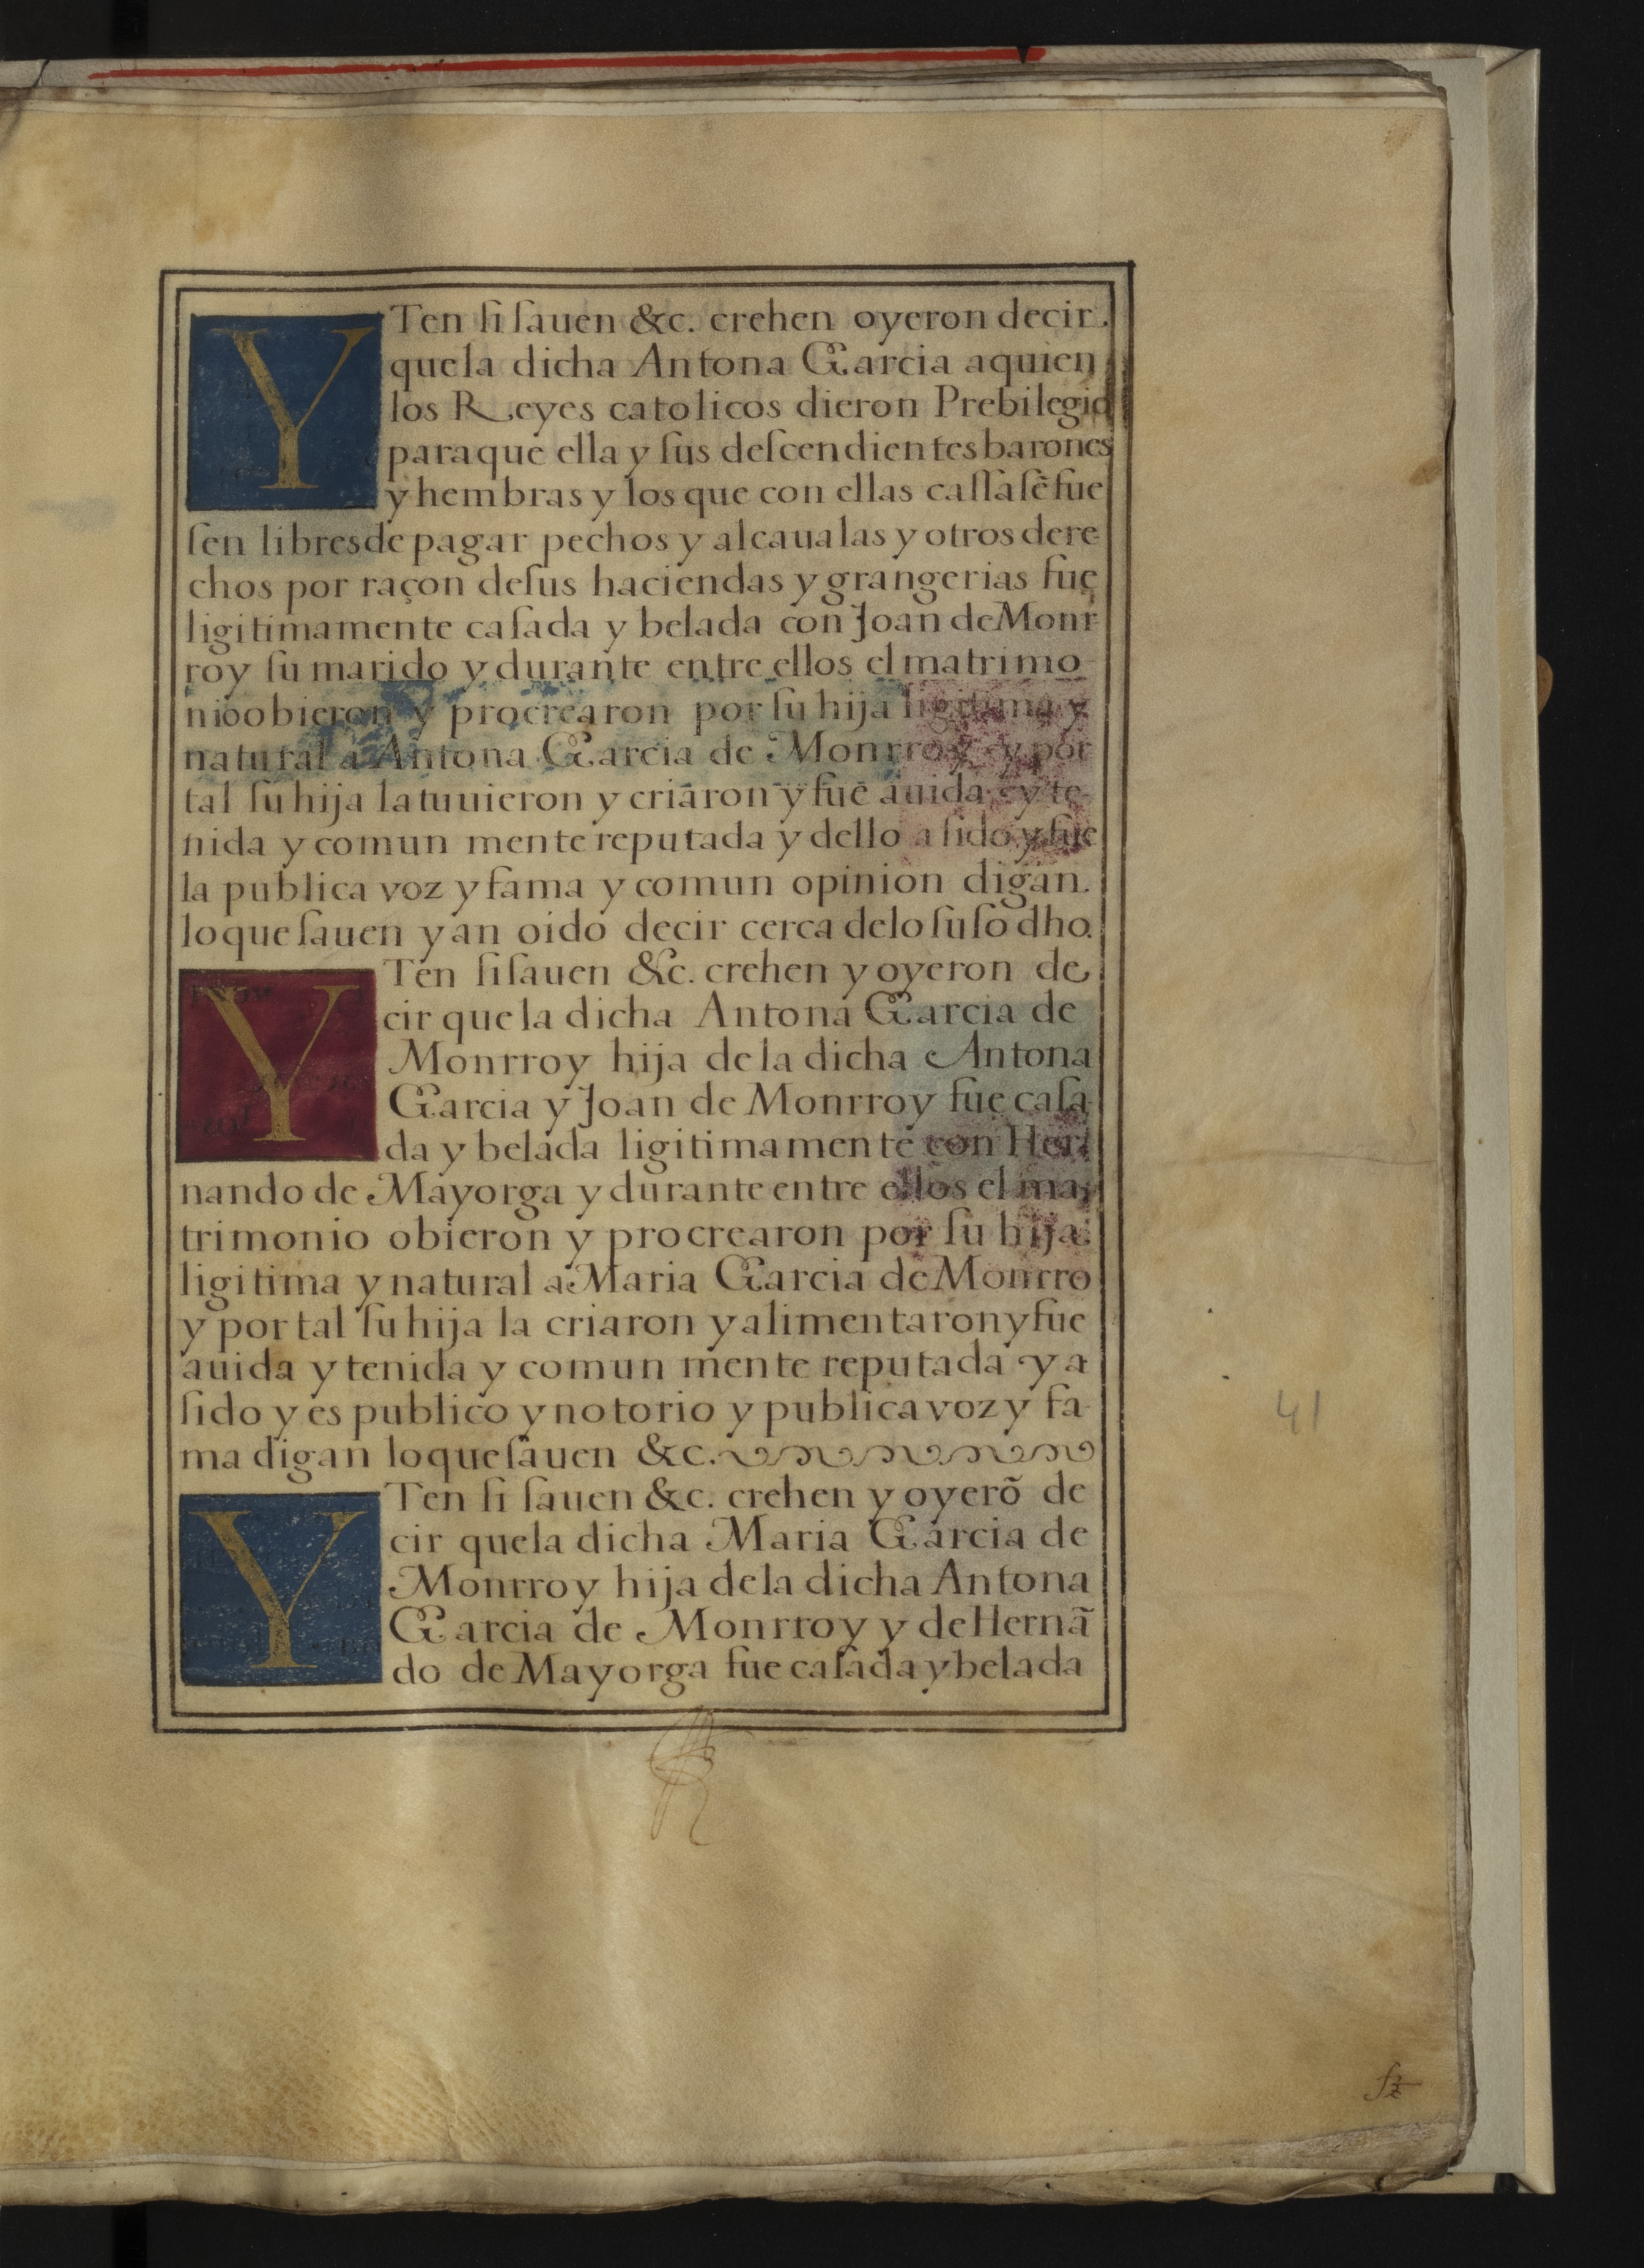 YTen si sauen &c. crehen oyeron decir.
que la dicha Antona Garcia aquien
los Reyes catolicos dieron Prebilegio
paraque ella y sus descendientes barones
y hembras y los que con ellas cassasẽ fue
sen libres de pagar pechos y alcaualas y otros dere
chos por raçon desus haciendas y grangerias fue
ligitimamente casada y belada con Joan de Monr
roy su marido y durante entre ellos el matrimo
nio obieron y procrearon por su hija ligitima y
natural a Antona Garcia de Monrroy y por
tal su hija la tuuieron y criaron y fue auida y te-
nida y comun mente reputada y dello a sido y fue
la publica voz y fama y comun opinion digan.
lo que sauen y an oido decir cerca delo suso dho.
YTen si sauen &c. crehen y oyeron de
cir que la dicha Antona Garcia de
Monrroy hija de la dicha Antona
Garcia y Joan de Monrroy fue casa
da y belada ligitimamente con Her
nando de Mayorga y durante entre ellos el ma
trimonio obieron y procrearon por su hija
ligitima y natural a Maria Garcia de Monrro
y por tal su hija la criaron y alimentaron y fue
auida y tenida y comun mente reputada y a
sido y es publico y notorio y publica voz y fa
ma digan lo que sauen &c.
YTen si sauen &c. crehen y oyerõ de
cir que la dicha Maria Garcia de
Monrroy hija dela dicha Antona
Garcia de Monrroy y de Hernã
do de Mayorga fue casada y belada
41